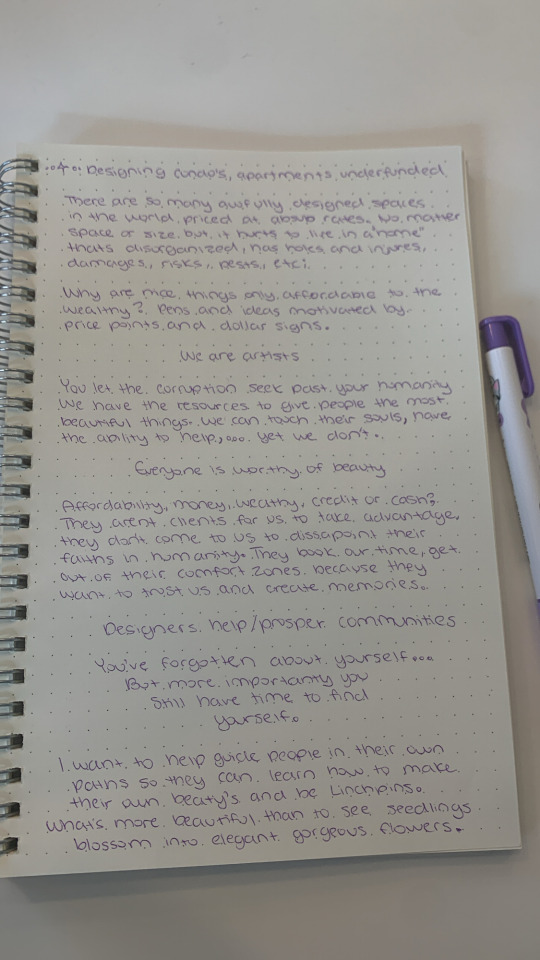 .4. Designing condo's, apartments, underfunded
There are so many awfully designed spaces
in the world priced at absurp rates. No matter
space or size. but it hurts to live in a "home"
thats disorganized, has holes and injures,
damages, risks, pests, etc.
Why are nice things only affordable to the
wealthy? Pens and ideas motivated by
price points and dollar signs.
We are artists
You let the corruption seek past your humanity
We have the resources to give people the most
beautiful things. We can touch their souls, have
the ability to help,... yet we don't.
Everyone is worthy of beauty
Affordability, money, wealthy, credit or cash?
They arent clients for us to take advantage,
they don't come to us to dissapoint their
faiths in humanity. They book our time, get
out of their comfort zones because they
want to trust us and create memories.
Designers help/prosper communities
You've forgotten about yourself...
But more importantly you
Still have time to find
yourself.
I want to help guide people in their own
paths so they can learn how to make
their own beauty's and be Linchpins.
What's more beautiful than to see seedlings
blossom into elegant gorgeous flowers.